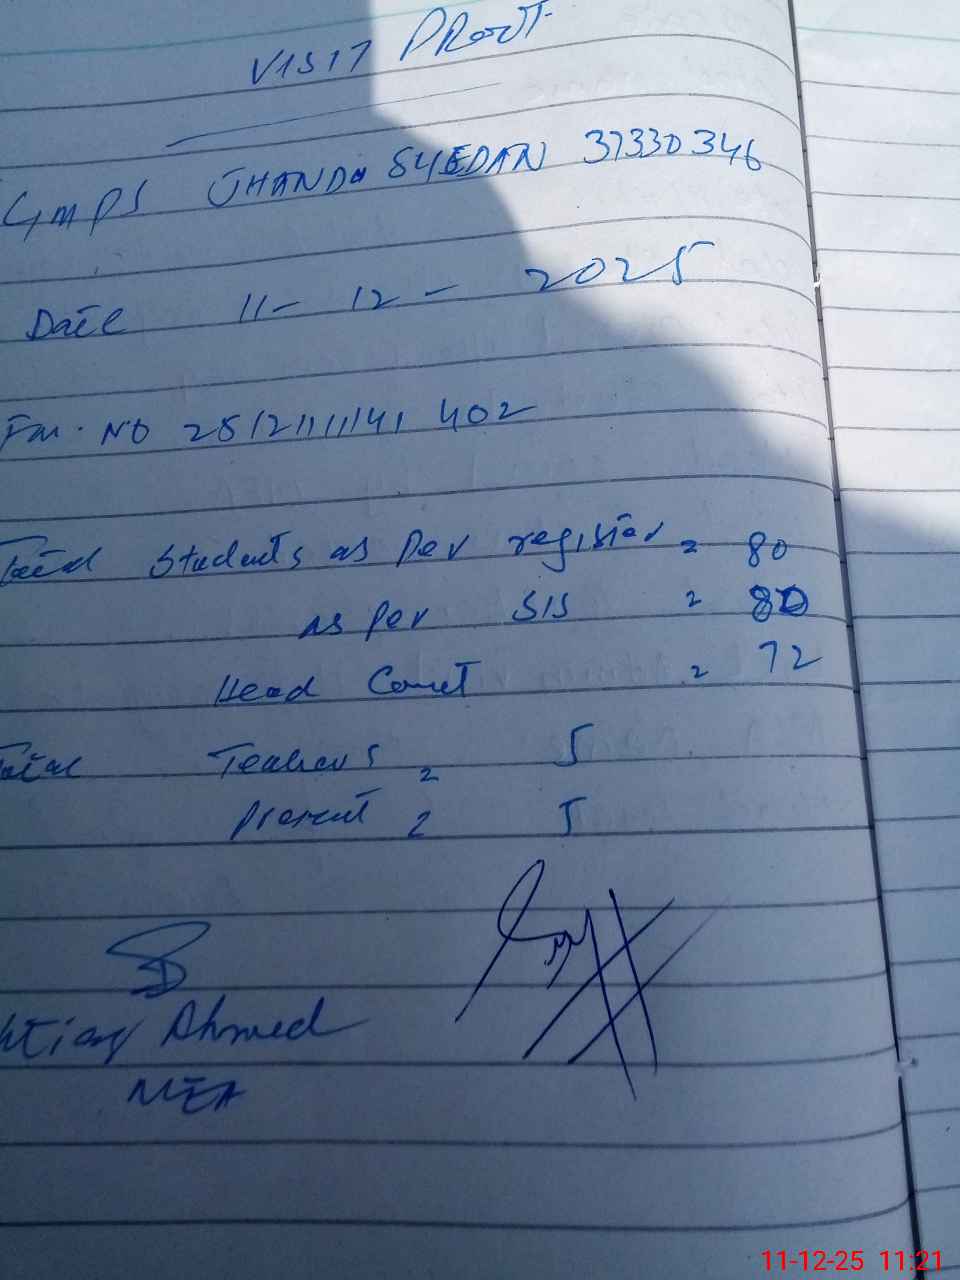 VISIT PROOF
GMPS JHANDA SYEDAN 37330346
Date 11-12-2025
Fm. No 2512111141 402
Total Students as Per register = 80
As Per SIS = 80
Head Count = 72
Total Teachers = 5
Present = 5
Ahmed
MEA
11-12-25 11:21